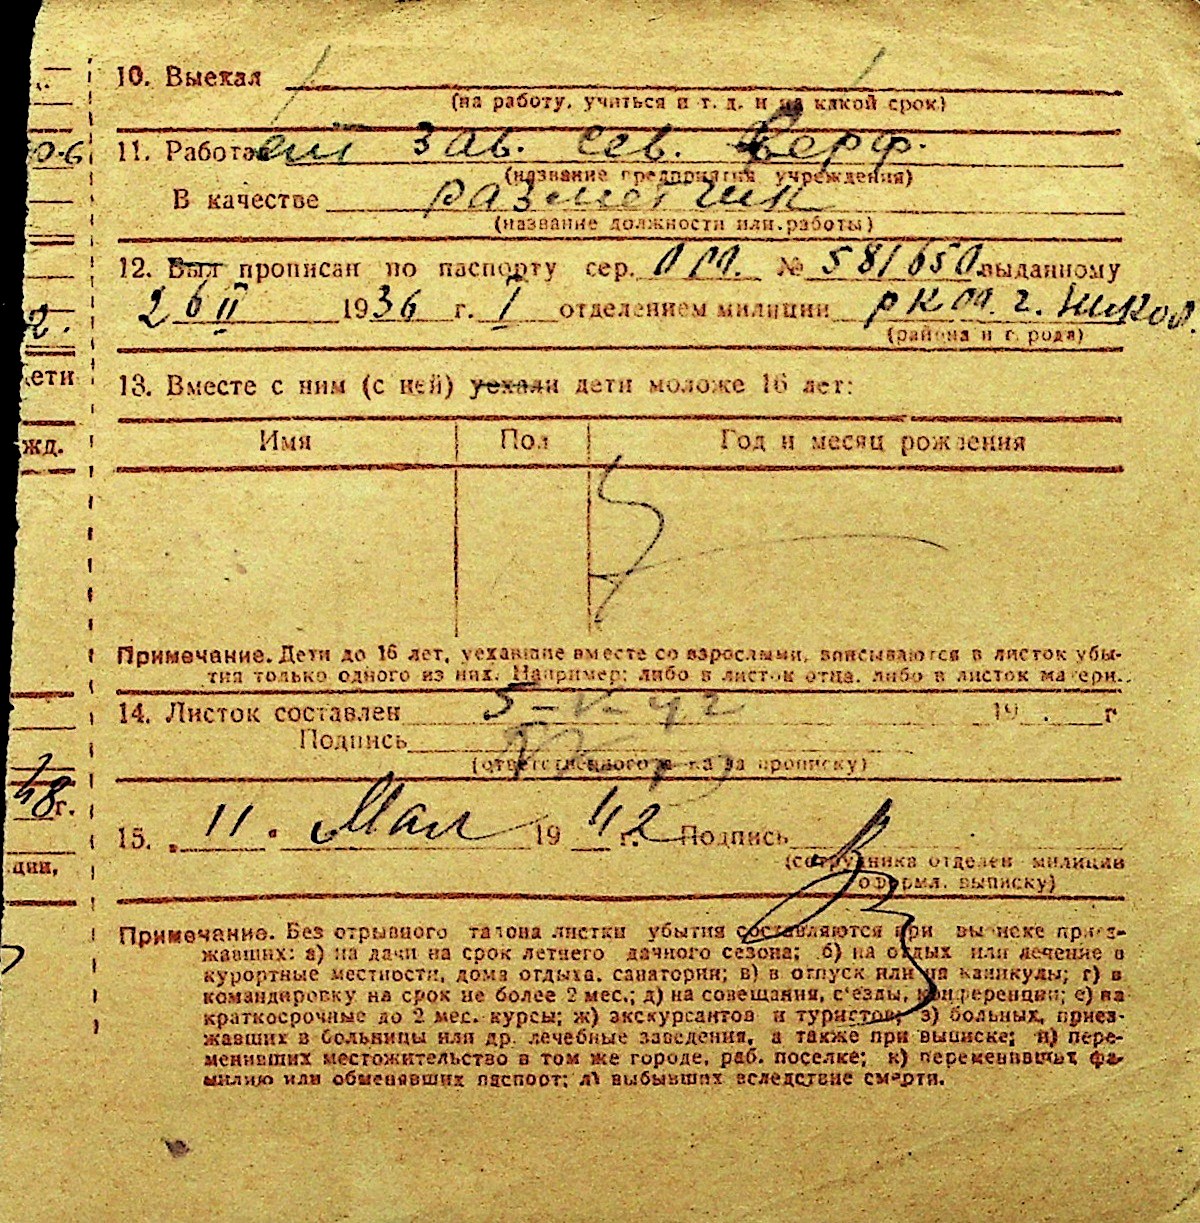 10. Выехал
(на работу, учиться и т. д. и на какой срок)
11. Работает зав. Сев. Верф.
(название предприятия учреждения)
В качестве разметчик
(название должности или работы)
12. Был прописан по паспорту сер. № 581650 выданному
26 II 1936 г. I отделением милиции РКМ г. Никол.
(района и города)
13. Вместе с ним (с ней) уехали дети моложе 16 лет:
Имя Пол Год и месяц рождения
Примечание. Дети до 16 лет, уехавшие вместе со взрослыми, вписываются в листок убы-
тия только одного из них. Например: либо в листок отца, либо в листок матери.
14. Листок составлен 5-V-42 19 г
Подпись
(ответственного за прописку)
15. „11" Мая 1942 г. Подпись
(сотрудника отделен милиции
оформл. выписку)
Примечание. Без отрывного талона листки убытия составляются при выписке приез-
жавших: а) на дачи на срок летнего дачного сезона; б) на отдых или лечение в
курортные местности, дома отдыха, санатории; в) в отпуск или на каникулы; г) в
командировку на срок не более 2 мес.; д) на совещания, с'езды, конференции; е) на
краткосрочные до 2 мес. курсы; ж) экскурсантов и туристов; з) больных, приез-
жавших в больницы или др. лечебные заведения, а также при выписке; и) пере-
менивших местожительство в том же городе, раб. поселке; к) переменивших фа-
милию или обменявших паспорт; л) выбывших вследствие смерти.
ети
жд.
48 г.
ции,